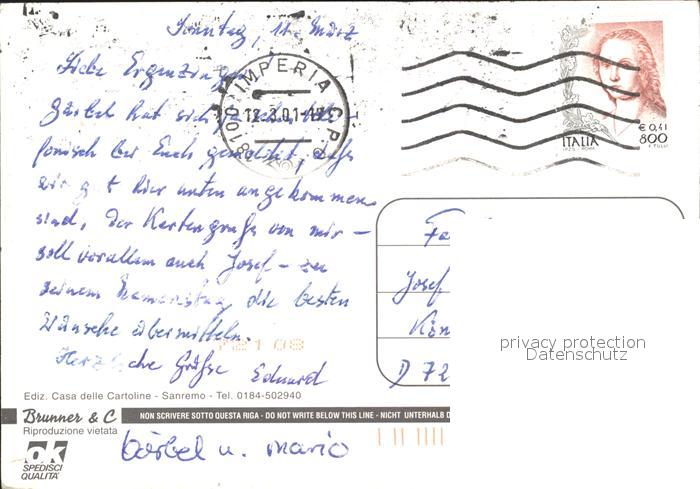 Sonntag, 11. März
Liebe Ergenzinger
Bärbel hat sich schon tele
fonisch bei Euch gemeldet, daß
wir gut hier unten angekommen
sind, Der Kartengruß von mir –
soll vorallem auch Josef – zu
seinem Namenstag die besten
Wünsche übermitteln.
Herzliche Grüße Eduard
bärbel u. mario
IMPERIA C.P.
18100
12.3.01-19
ITALIA
€ 0,41
800
Fa
Josef
Kön
D 72
privacy protection
Datenschutz
Ediz. Casa delle Cartoline - Sanremo - Tel. 0184-502940
Brunner & C
Riproduzione vietata
NON SCRIVERE SOTTO QUESTA RIGA - DO NOT WRITE BELOW THIS LINE - NICHT UNTERHALB D
ok
SPEDISCI
QUALITA'